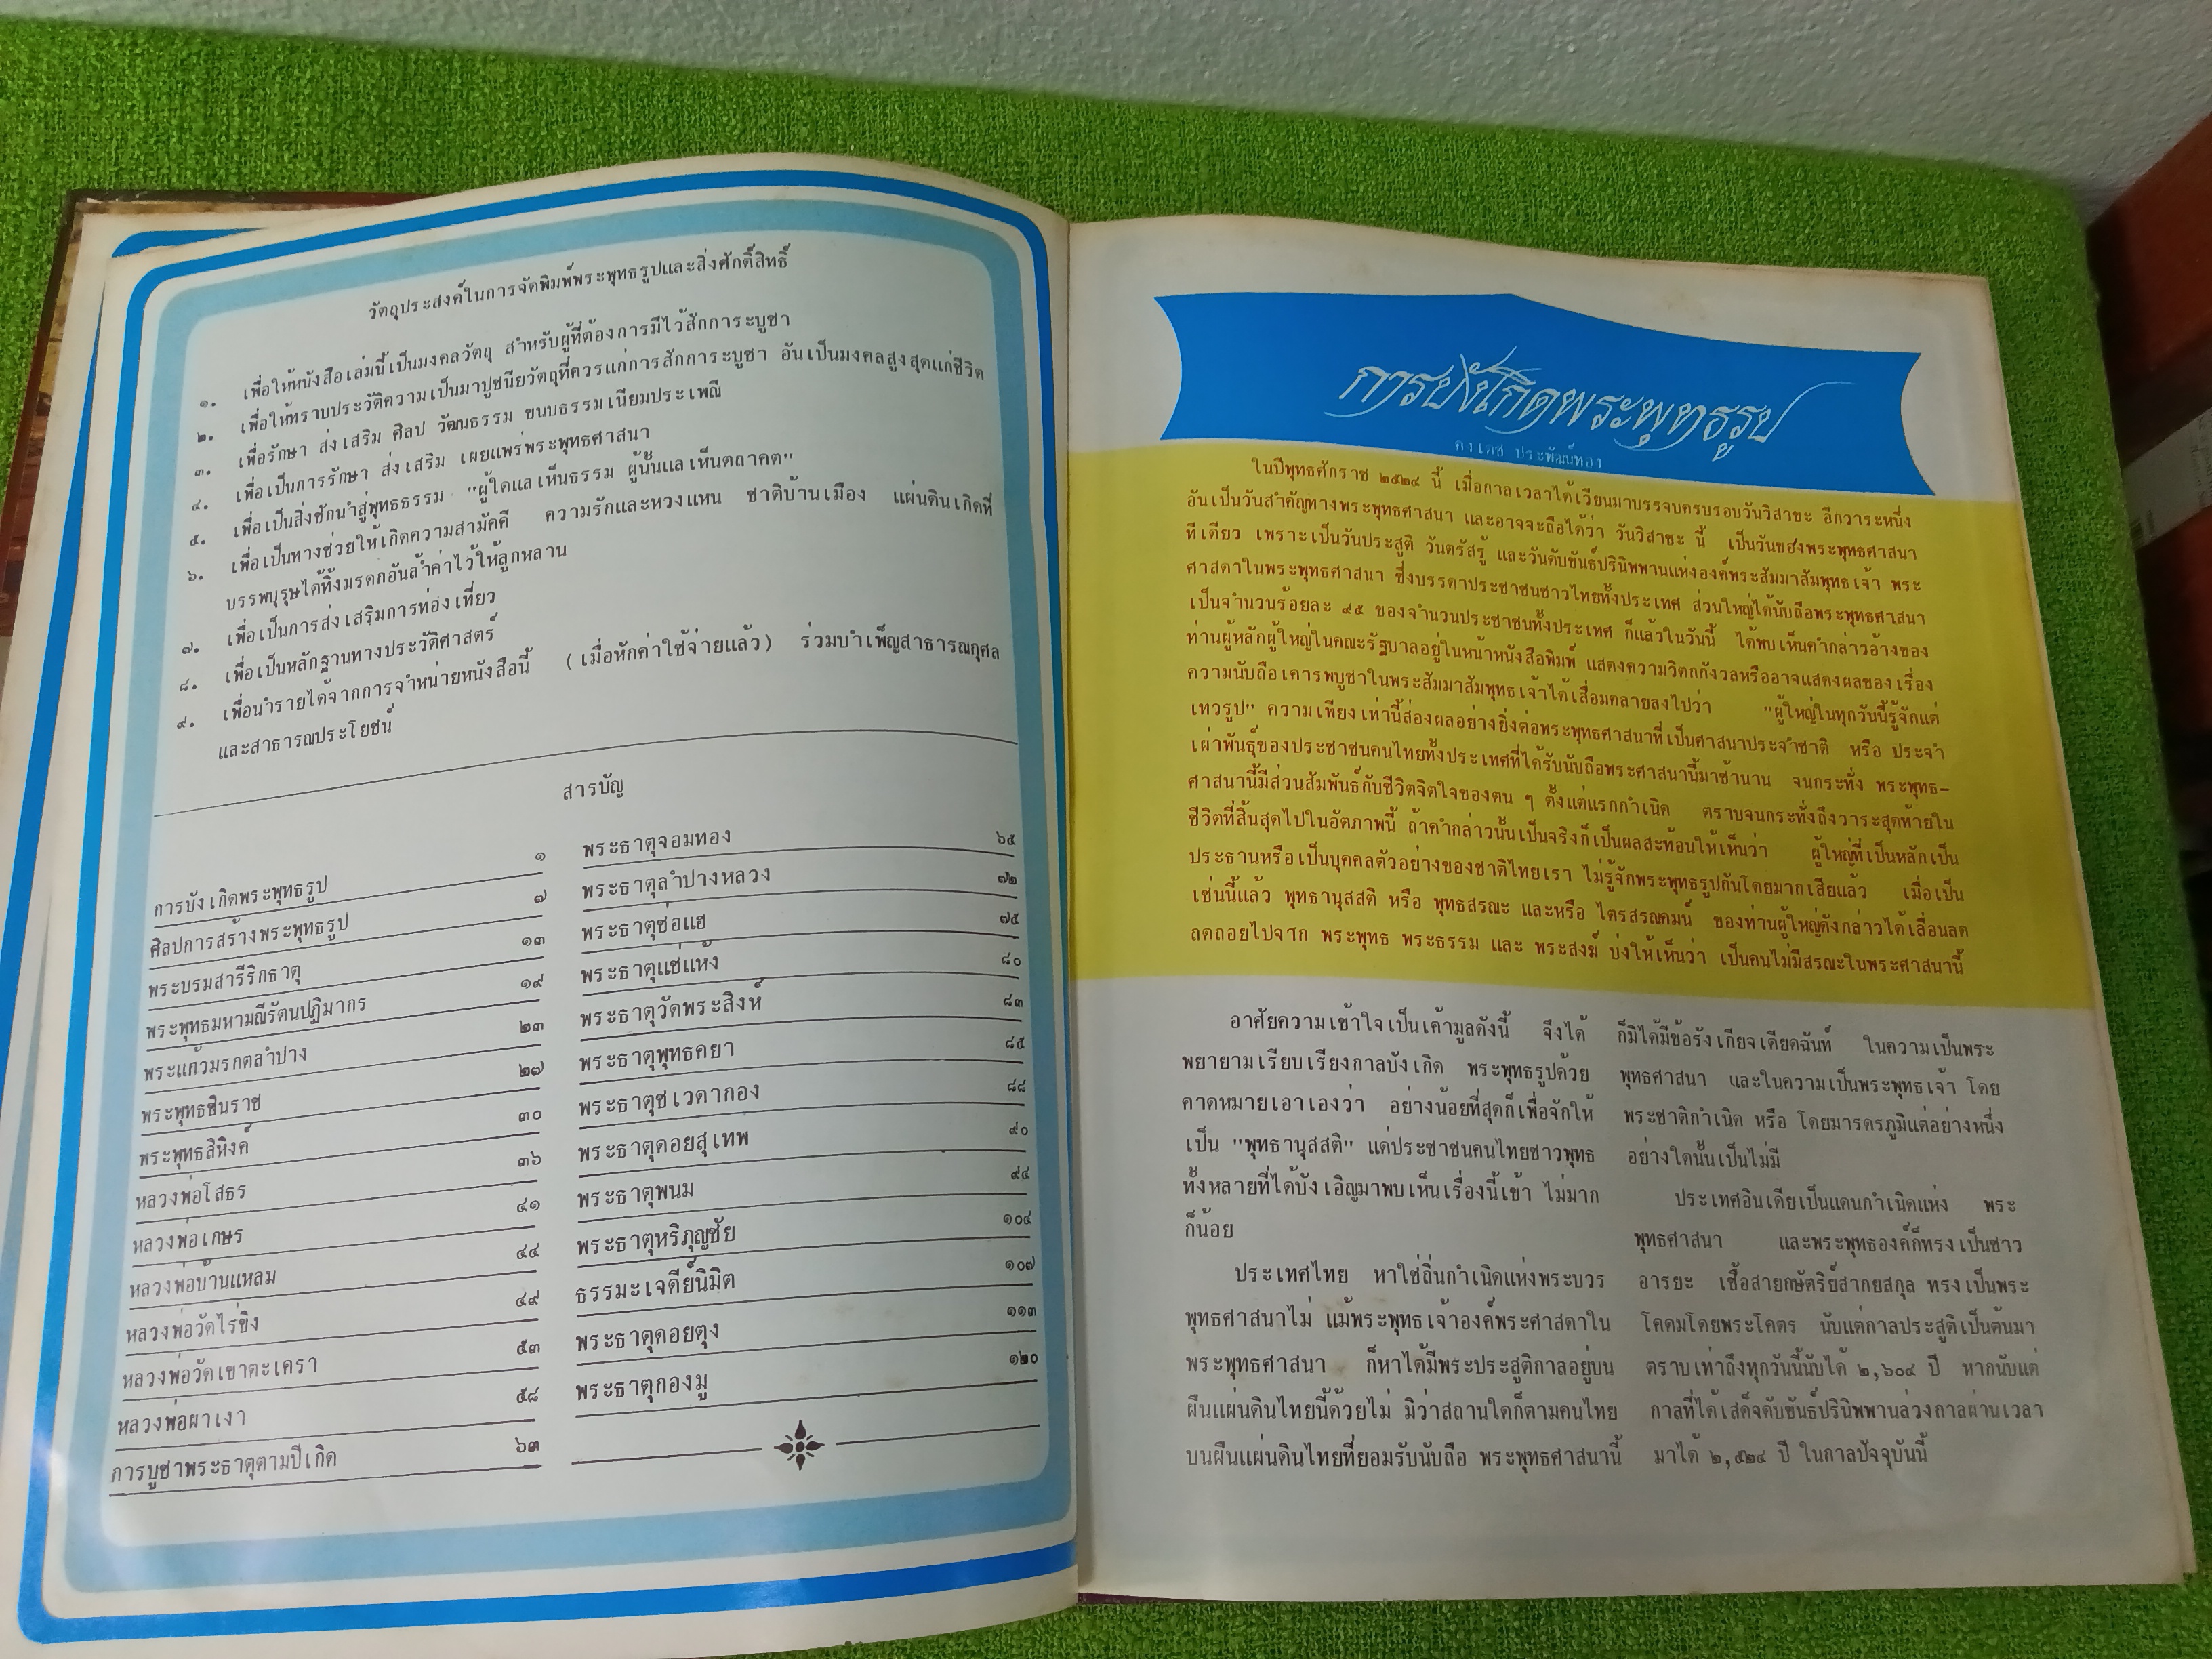 วัตถุประสงค์ในการจัดพิมพ์พระพุทธรูปและสิ่งศักดิ์สิทธิ์
๑. เพื่อให้หนังสือเล่มนี้เป็นมงคลวัตถุ สำหรับผู้ที่ต้องการมีไว้สักการะบูชา
๒. เพื่อให้ทราบประวัติความเป็นมาปูชนียวัตถุที่ควรแก่การสักการะบูชา อันเป็นมงคลสูงสุดแก่ชีวิต
๓. เพื่อรักษา ส่งเสริม ศิลป วัฒนธรรม ขนบธรรมเนียมประเพณี
๔. เพื่อเป็นการรักษา ส่งเสริม เผยแพร่พระพุทธศาสนา
๕. เพื่อเป็นสิ่งชักนำสู่พุทธธรรม "ผู้ใดแลเห็นธรรม ผู้นั้นแลเห็นตถาคต"
๖. เพื่อเป็นทางช่วยให้เกิดความสามัคคี ความรักและหวงแหน ชาติบ้านเมือง แผ่นดินเกิดที่
บรรพบุรุษได้ทิ้งมรดกอันล้ำค่าไว้ให้ลูกหลาน
๗. เพื่อเป็นการส่งเสริมการท่องเที่ยว
๘. เพื่อเป็นหลักฐานทางประวัติศาสตร์
๙. เพื่อนำรายได้จากการจำหน่ายหนังสือนี้ (เมื่อหักค่าใช้จ่ายแล้ว) ร่วมบำเพ็ญสาธารณกุศล
และสาธารณประโยชน์
สารบัญ
การบังเกิดพระพุทธรูป ๑
ศิลปการสร้างพระพุทธรูป ๗
พระบรมสารีริกธาตุ ๑๓
พระพุทธมหามณีรัตนปฏิมากร ๑๙
พระแก้วมรกตลำปาง ๒๓
พระพุทธชินราช ๒๗
พระพุทธสิหิงค์ ๓๐
หลวงพ่อโสธร ๓๖
หลวงพ่อเกษร ๔๑
หลวงพ่อบ้านแหลม ๔๔
หลวงพ่อวัดไร่ขิง ๔๙
หลวงพ่อวัดเขาตะเครา ๕๓
หลวงพ่อผาเงา ๕๘
การบูชาพระธาตุตามปีเกิด ๖๓
พระธาตุจอมทอง ๖๕
พระธาตุลำปางหลวง ๗๒
พระธาตุช่อแฮ ๗๕
พระธาตุแช่แห้ง ๘๐
พระธาตุวัดพระสิงห์ ๘๓
พระธาตุพุทธคยา ๘๕
พระธาตุชเวดากอง ๘๘
พระธาตุดอยสุเทพ ๙๐
พระธาตุพนม ๙๔
พระธาตุหริภุญชัย ๑๐๔
ธรรมะเจดีย์นิมิต ๑๐๗
พระธาตุดอยตุง ๑๑๓
พระธาตุกองมู ๑๒๐
การบังเกิดพระพุทธรูป
ดวงเดช ประพัฒน์ทอง
ในปีพุทธศักราช ๒๕๒๔ นี้ เมื่อกาลเวลาได้เวียนมาบรรจบครบรอบวันวิสาขะ อีกวาระหนึ่ง
อันเป็นวันสำคัญทางพระพุทธศาสนา และอาจจะถือได้ว่า วันวิสาขะ นี้ เป็นวันของพระพุทธศาสนา
ทีเดียว เพราะเป็นวันประสูติ วันตรัสรู้ และวันดับขันธ์ปรินิพพานแห่งองค์พระสัมมาสัมพุทธเจ้า พระ
ศาสดาในพระพุทธศาสนา ซึ่งบรรดาประชาชนชาวไทยทั้งประเทศ ส่วนใหญ่ได้นับถือพระพุทธศาสนา
เป็นจำนวนร้อยละ ๙๕ ของจำนวนประชาชนทั้งประเทศ ก็แล้วในวันนี้ ได้พบเห็นคำกล่าวอ้างของ
ท่านผู้หลักผู้ใหญ่ในคณะรัฐบาลอยู่ในหน้าหนังสือพิมพ์ แสดงความวิตกกังวลหรืออาจแสดงผลของเรื่อง
ความนับถือเคารพบูชาในพระสัมมาสัมพุทธเจ้าได้เสื่อมคลายลงไปว่า "ผู้ใหญ่ในทุกวันนี้รู้จักแต่
เทวรูป" ความเพียงเท่านี้ส่องผลอย่างยิ่งต่อพระพุทธศาสนาที่เป็นศาสนาประจำชาติ หรือ ประจำ
เผ่าพันธุ์ของประชาชนคนไทยทั้งประเทศที่ได้รับนับถือพระศาสนานี้มาช้านาน จนกระทั่ง พระพุทธ-
ศาสนานี้มีส่วนสัมพันธ์กับชีวิตจิตใจของตน ๆ ตั้งแต่แรกกำเนิด ตราบจนกระทั่งถึงวาระสุดท้ายใน
ชีวิตที่สิ้นสุดไปในอัตภาพนี้ ถ้าคำกล่าวนั้นเป็นจริงก็เป็นผลสะท้อนให้เห็นว่า ผู้ใหญ่ที่เป็นหลักเป็น
ประธานหรือเป็นบุคคลตัวอย่างของชาติไทยเรา ไม่รู้จักพระพุทธรูปกันโดยมากเสียแล้ว เมื่อเป็น
เช่นนี้แล้ว พุทธานุสสติ หรือ พุทธสรณะ และหรือ ไตรสรณคมน์ ของท่านผู้ใหญ่ดังกล่าวได้เลื่อนลด
ถดถอยไปจาก พระพุทธ พระธรรม และ พระสงฆ์ บ่งให้เห็นว่า เป็นคนไม่มีสรณะในพระศาสนานี้
อาศัยความเข้าใจเป็นเค้ามูลดังนี้ จึงได้
พยายามเรียบเรียงกาลบังเกิด พระพุทธรูปด้วย
คาดหมายเอาเองว่า อย่างน้อยที่สุดก็เพื่อจักให้
เป็น "พุทธานุสสติ" แด่ประชาชนคนไทยชาวพุทธ
ทั้งหลายที่ได้บังเอิญมาพบเห็นเรื่องนี้เข้า ไม่มาก
ก็น้อย
ประเทศไทย หาใช่ถิ่นกำเนิดแห่งพระบวร
พุทธศาสนาไม่ แม้พระพุทธเจ้าองค์พระศาสดาใน
พระพุทธศาสนา ก็หาได้มีพระประสูติกาลอยู่บน
ผืนแผ่นดินไทยนี้ด้วยไม่ มิว่าสถานใดก็ตามคนไทย
บนผืนแผ่นดินไทยที่ยอมรับนับถือ พระพุทธศาสนานี้
ก็มิได้มีข้อรังเกียจเดียดฉันท์ ในความเป็นพระ
พุทธศาสนา และในความเป็นพระพุทธเจ้า โดย
พระชาติกำเนิด หรือ โดยมารดรภูมิแต่อย่างหนึ่ง
อย่างใดนั้นเป็นไม่มี
ประเทศอินเดียเป็นแดนกำเนิดแห่ง พระ
พุทธศาสนา และพระพุทธองค์ก็ทรงเป็นชาว
อารยะ เชื้อสายกษัตริย์สากยสกุล ทรงเป็นพระ
โคดมโดยพระโคตร นับแต่กาลประสูติเป็นต้นมา
ตราบเท่าถึงทุกวันนี้นับได้ ๒,๖๐๔ ปี หากนับแต่
กาลที่ได้เสด็จดับขันธ์ปรินิพพานล่วงกาลผ่านเวลา
มาได้ ๒,๕๒๔ ปี ในกาลปัจจุบันนี้